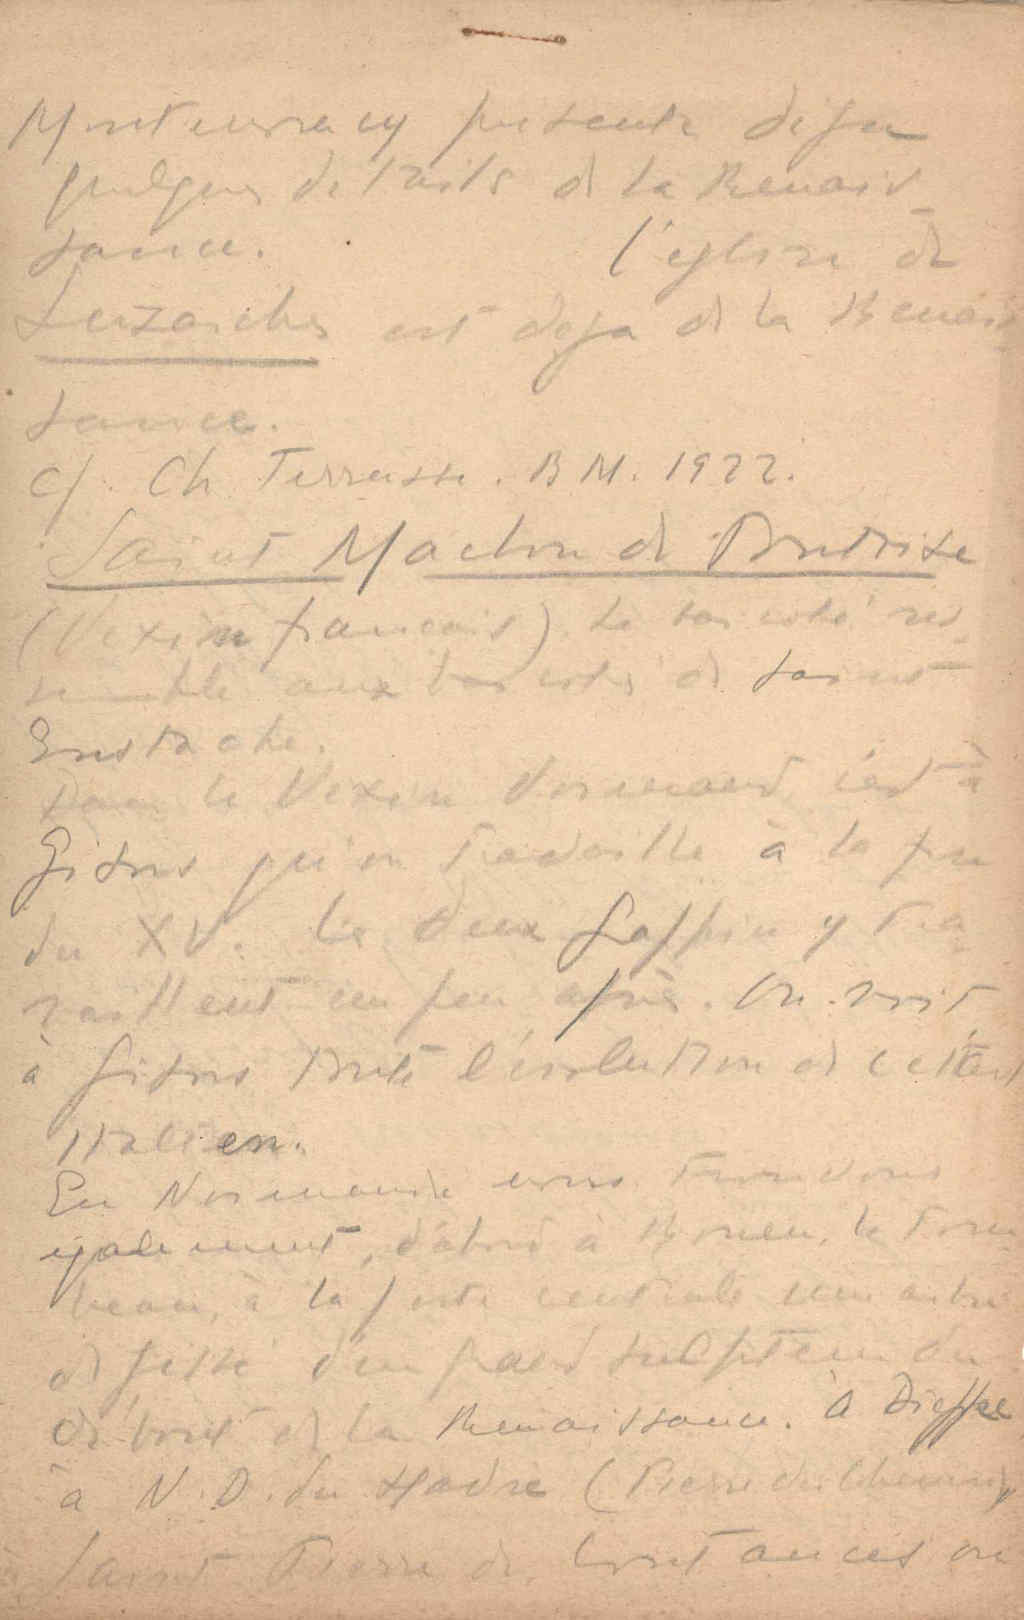 Montmorency présente déjà
quelques détails de la Renais-
sance. L'église de
Luzarches est déjà de la Renais
sance.
cf. Ch Terrasse. B M. 1922.
Saint Maclou de Pontoise
(Vexin français) Le bas côté res-
semble aux bas côtés de saint
Eustache.
Dans le Vexin Normand, c'est à
Gisors qu'on travaille à la fin
du XV. Les deux Grappin y tra-
vaillent un peu après. On voit
à Gisors toute l'évolution de cet art
italien.
En Normandie nous trouvons
également, d'abord à Rouen, le Tom
beau, à la porte centrale un arbre
de Jessé d'un grand sculpteur du
début de la Renaissance. à Dieppe
à N. D. du Havre (Pierre du
Saint Pierre de Coutances on